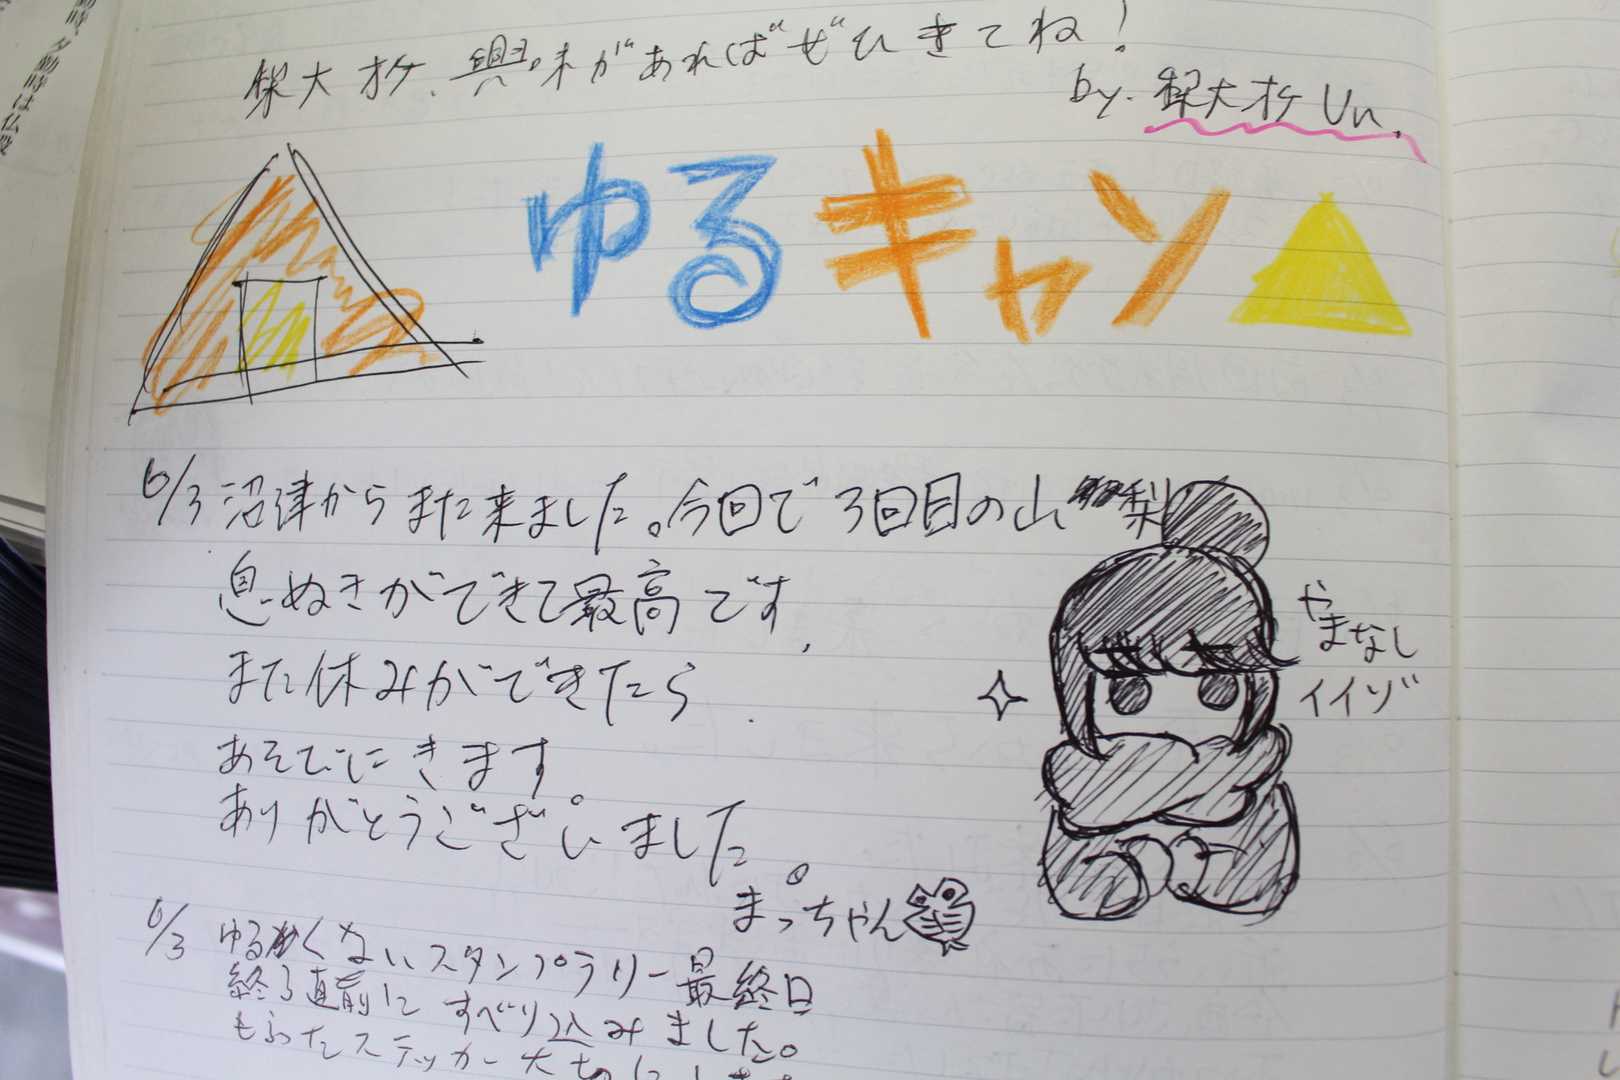 梨大オケ、興味があればぜひきてね!
by. 梨大オケ Un.
ゆるキャン
6/3 沼津からまた来ました。今回で3回目の山梨
息ぬきができて最高です、
また休みができたら
あそびにきます。
ありがとうございました。
まっちゃん
やまなし
イイゾ
6/3 ゆるくないスタンプラリー最終日
終了直前にすべり込みました。
もらったステッカー大切にします